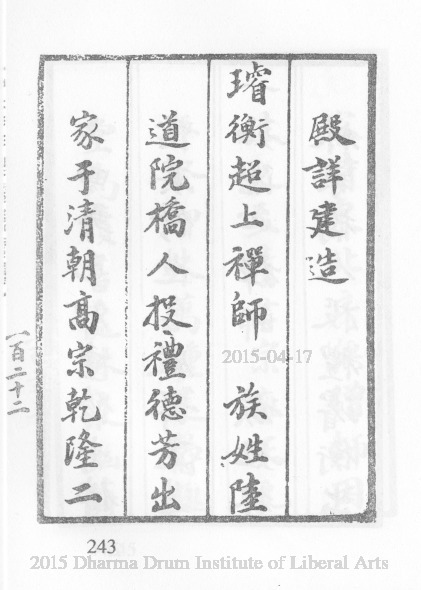 殿詳建造
璿衡超上禪師　族姓陸
道院橋人投禮德芳出
家于清朝高宗乾隆二
一百二十二
2015-04-17
243
2015 Dharma Drum Institute of Liberal Arts